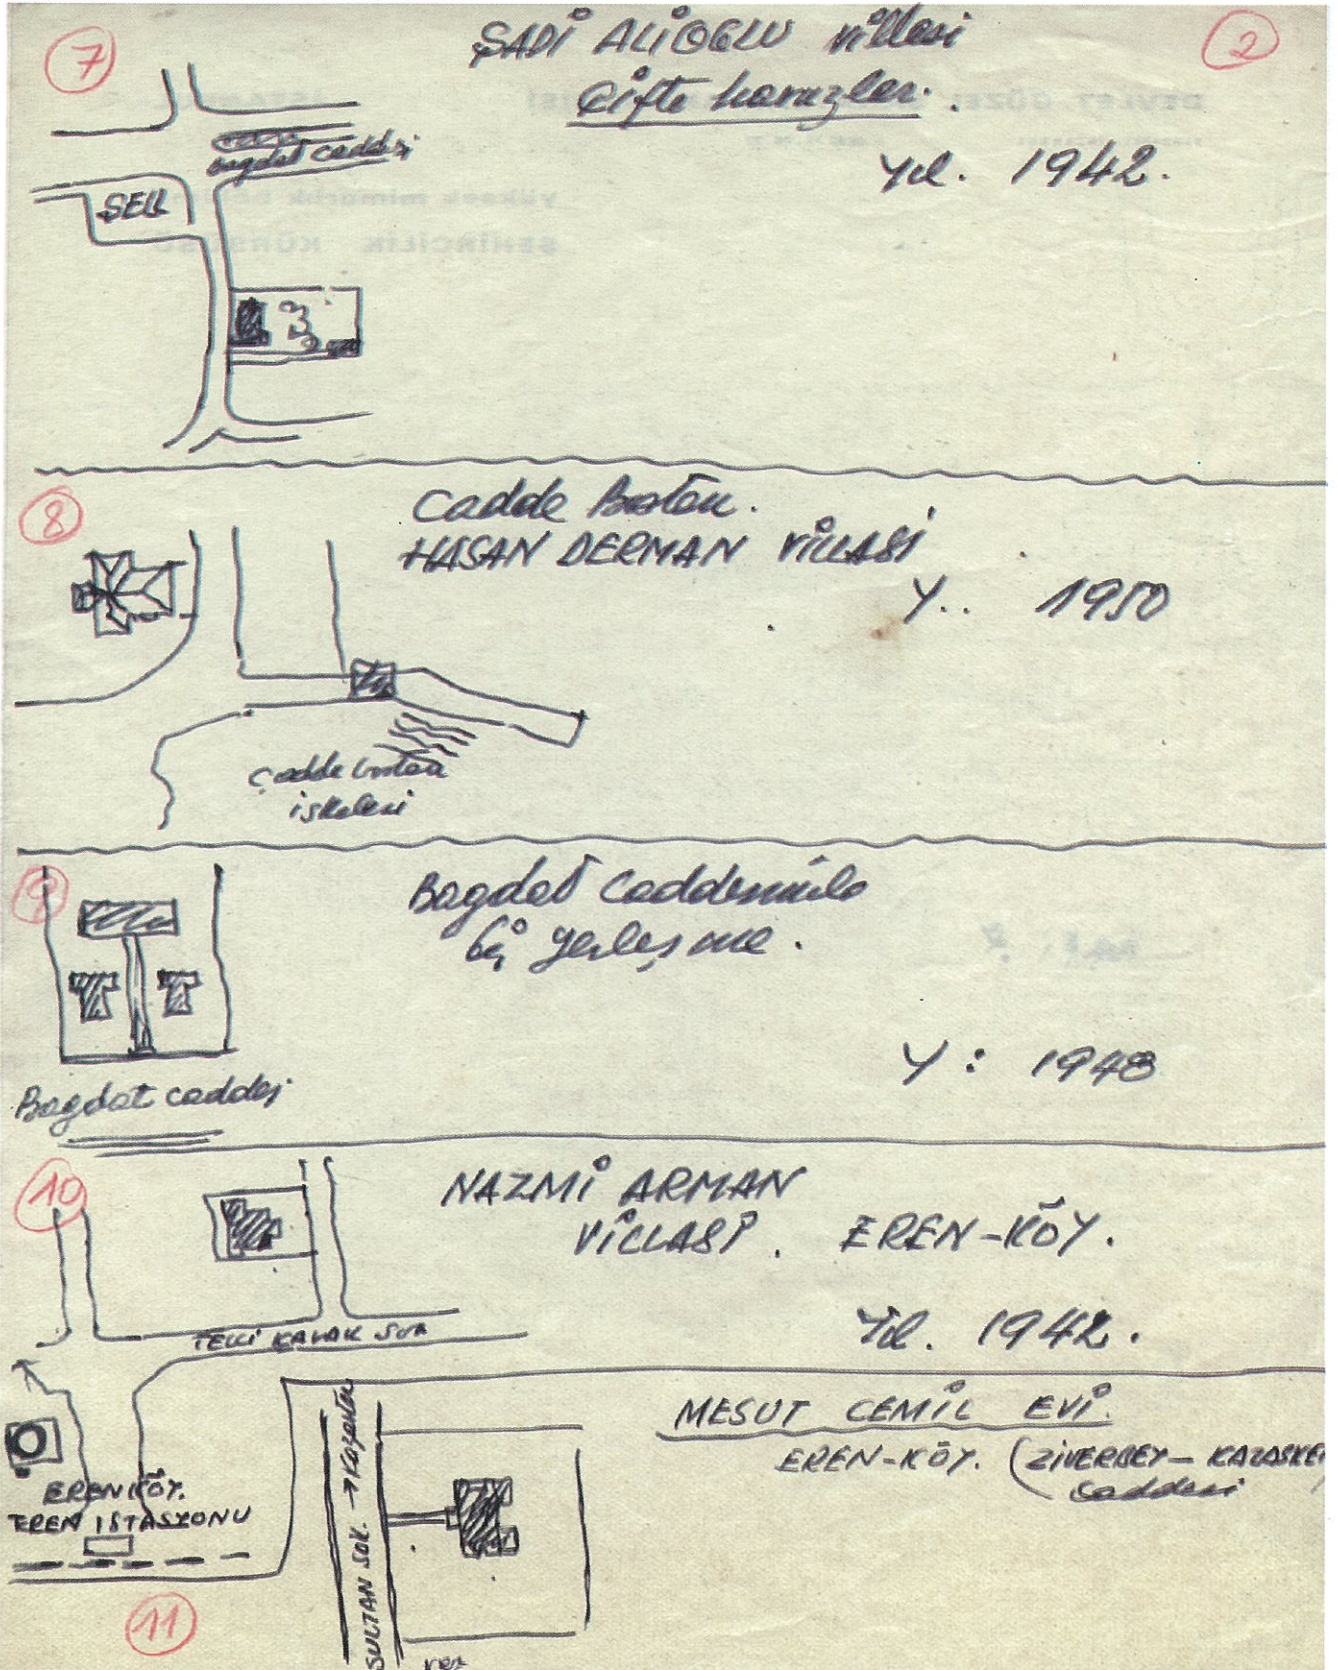 7
ŞADİ ALİOĞLU Villası
2
Çifte havuzlar.
Bagdat caddesi
Yıl. 1942.
SELL
3
8
Cadde Bostan.
HASAN DERMAN VİLLASİ
Y.. 1950
Cadde bostan
iskelesi
9
Bagdat Caddesinde
bir yerleşme.
Y: 1948
Bagdat caddesi
10
NAZMİ ARMAN
VİLLASİ. EREN-KÖY.
Yıl. 1942.
TELLİ KAVAK SOK
MESUT CEMİL EVİ.
EREN-KÖY. (ZİVERBEY-KAZASKER
caddesi)
ERENKÖY.
TREN ISTASYONU
SULTAN SOK. →Kazasker
11